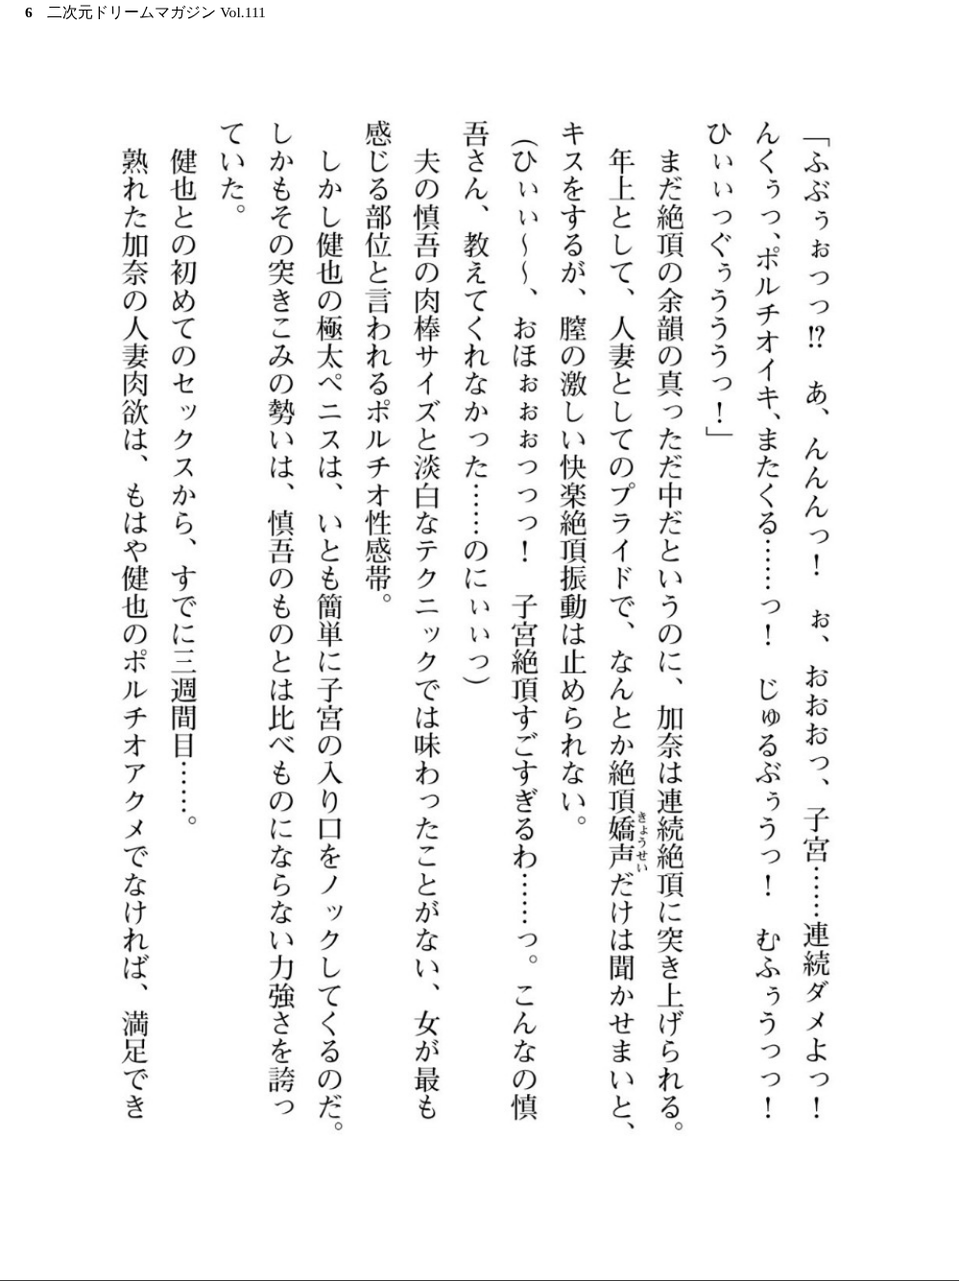 6 二次元ドリームマガジン Vol.111
「ふぶぅぉっっ!? あ、んんんっ！ ぉ、おおおっ、子宮……連続ダメよっ！
んくぅっ、ポルチオイキ、またくる……っ！ じゅるぶぅうっ！ むふぅうっっ！
ひぃぃっぐぅうううっ！」
まだ絶頂の余韻の真っただ中だというのに、加奈は連続絶頂に突き上げられる。
年上として、人妻としてのプライドで、なんとか絶頂嬌声だけは聞かせまいと、
きょうせい
キスをするが、膣の激しい快楽絶頂振動は止められない。
（ひぃぃ～～、おほぉぉぉっっっ！ 子宮絶頂すごすぎるわ……っ。こんなの慎
吾さん、教えてくれなかった……のにぃぃっ）
夫の慎吾の肉棒サイズと淡白なテクニックでは味わったことがない、女が最も
感じる部位と言われるポルチオ性感帯。
しかし健也の極太ペニスは、いとも簡単に子宮の入り口をノックしてくるのだ。
しかもその突きこみの勢いは、慎吾のものとは比べものにならない力強さを誇っ
ていた。
健也との初めてのセックスから、すでに三週間目……。
熟れた加奈の人妻肉欲は、もはや健也のポルチオアクメでなければ、満足でき